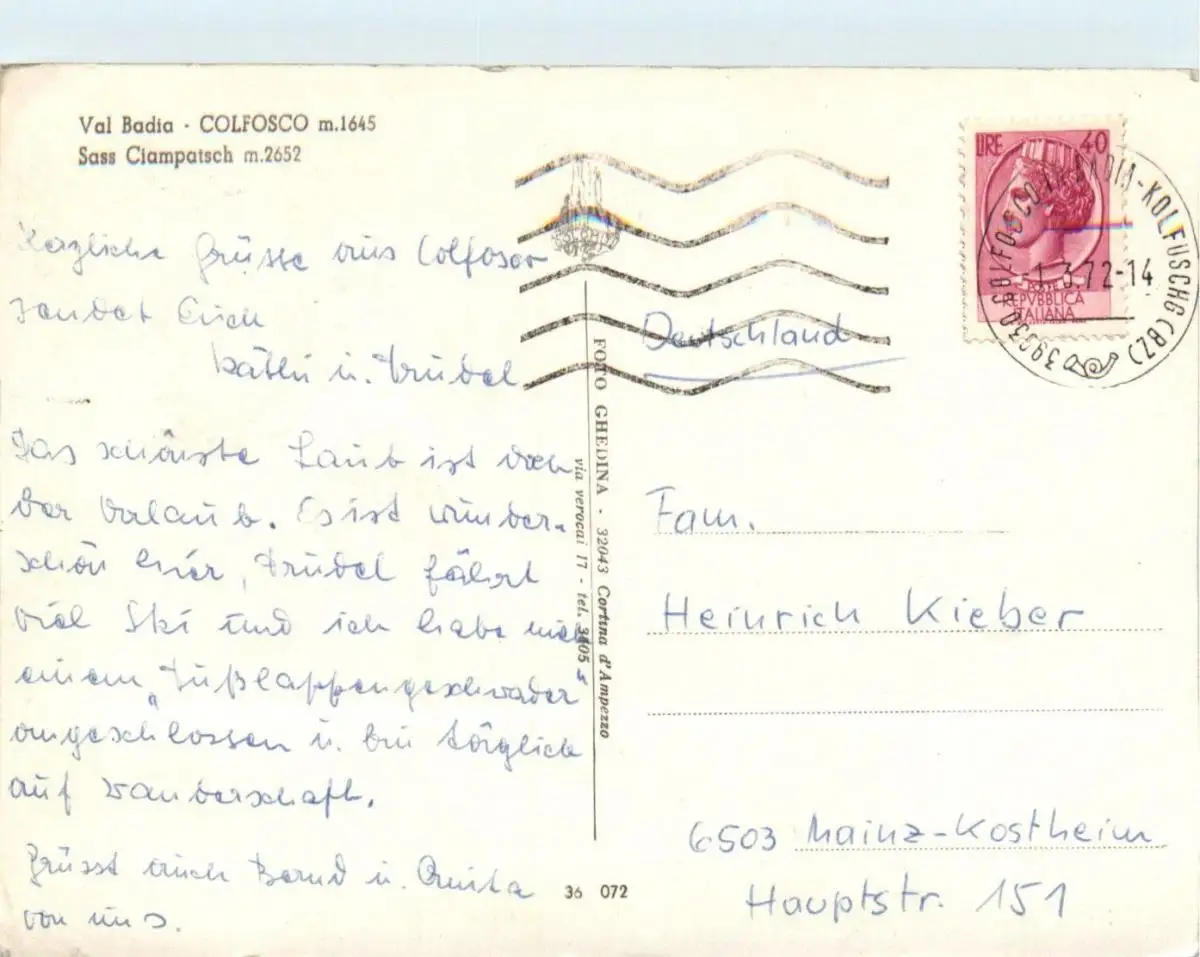 Val Badia - COLFOSCO m.1645
Sass Ciampatsch m.2652
Herzliche Grüsse aus Colfosco
sendet Euch
Käthi u. Trudel
Das schönste Laub ist doch
der Urlaub. Es ist wunder-
schön hier, Trudel fährt
viel Ski und ich habe mich
einem „Fußlappengeschwader"
angeschlossen u. bin täglich
auf Wanderschaft.
Grüsst auch Bernd u. Anita
von uns.
FOTO GHEDINA - 32043 Cortina d'Ampezzo
via verocai 17 - tel. 3405
36 072
LIRE 40
POSTE
REPVBBLICA
ITALIANA
39030 COLFOSCO BADIA-KOLFUSCHG (BZ)
-1.3.72-14
Deutschland
Fam.
Heinrich Kieber
6503 Mainz-Kostheim
Hauptstr. 151